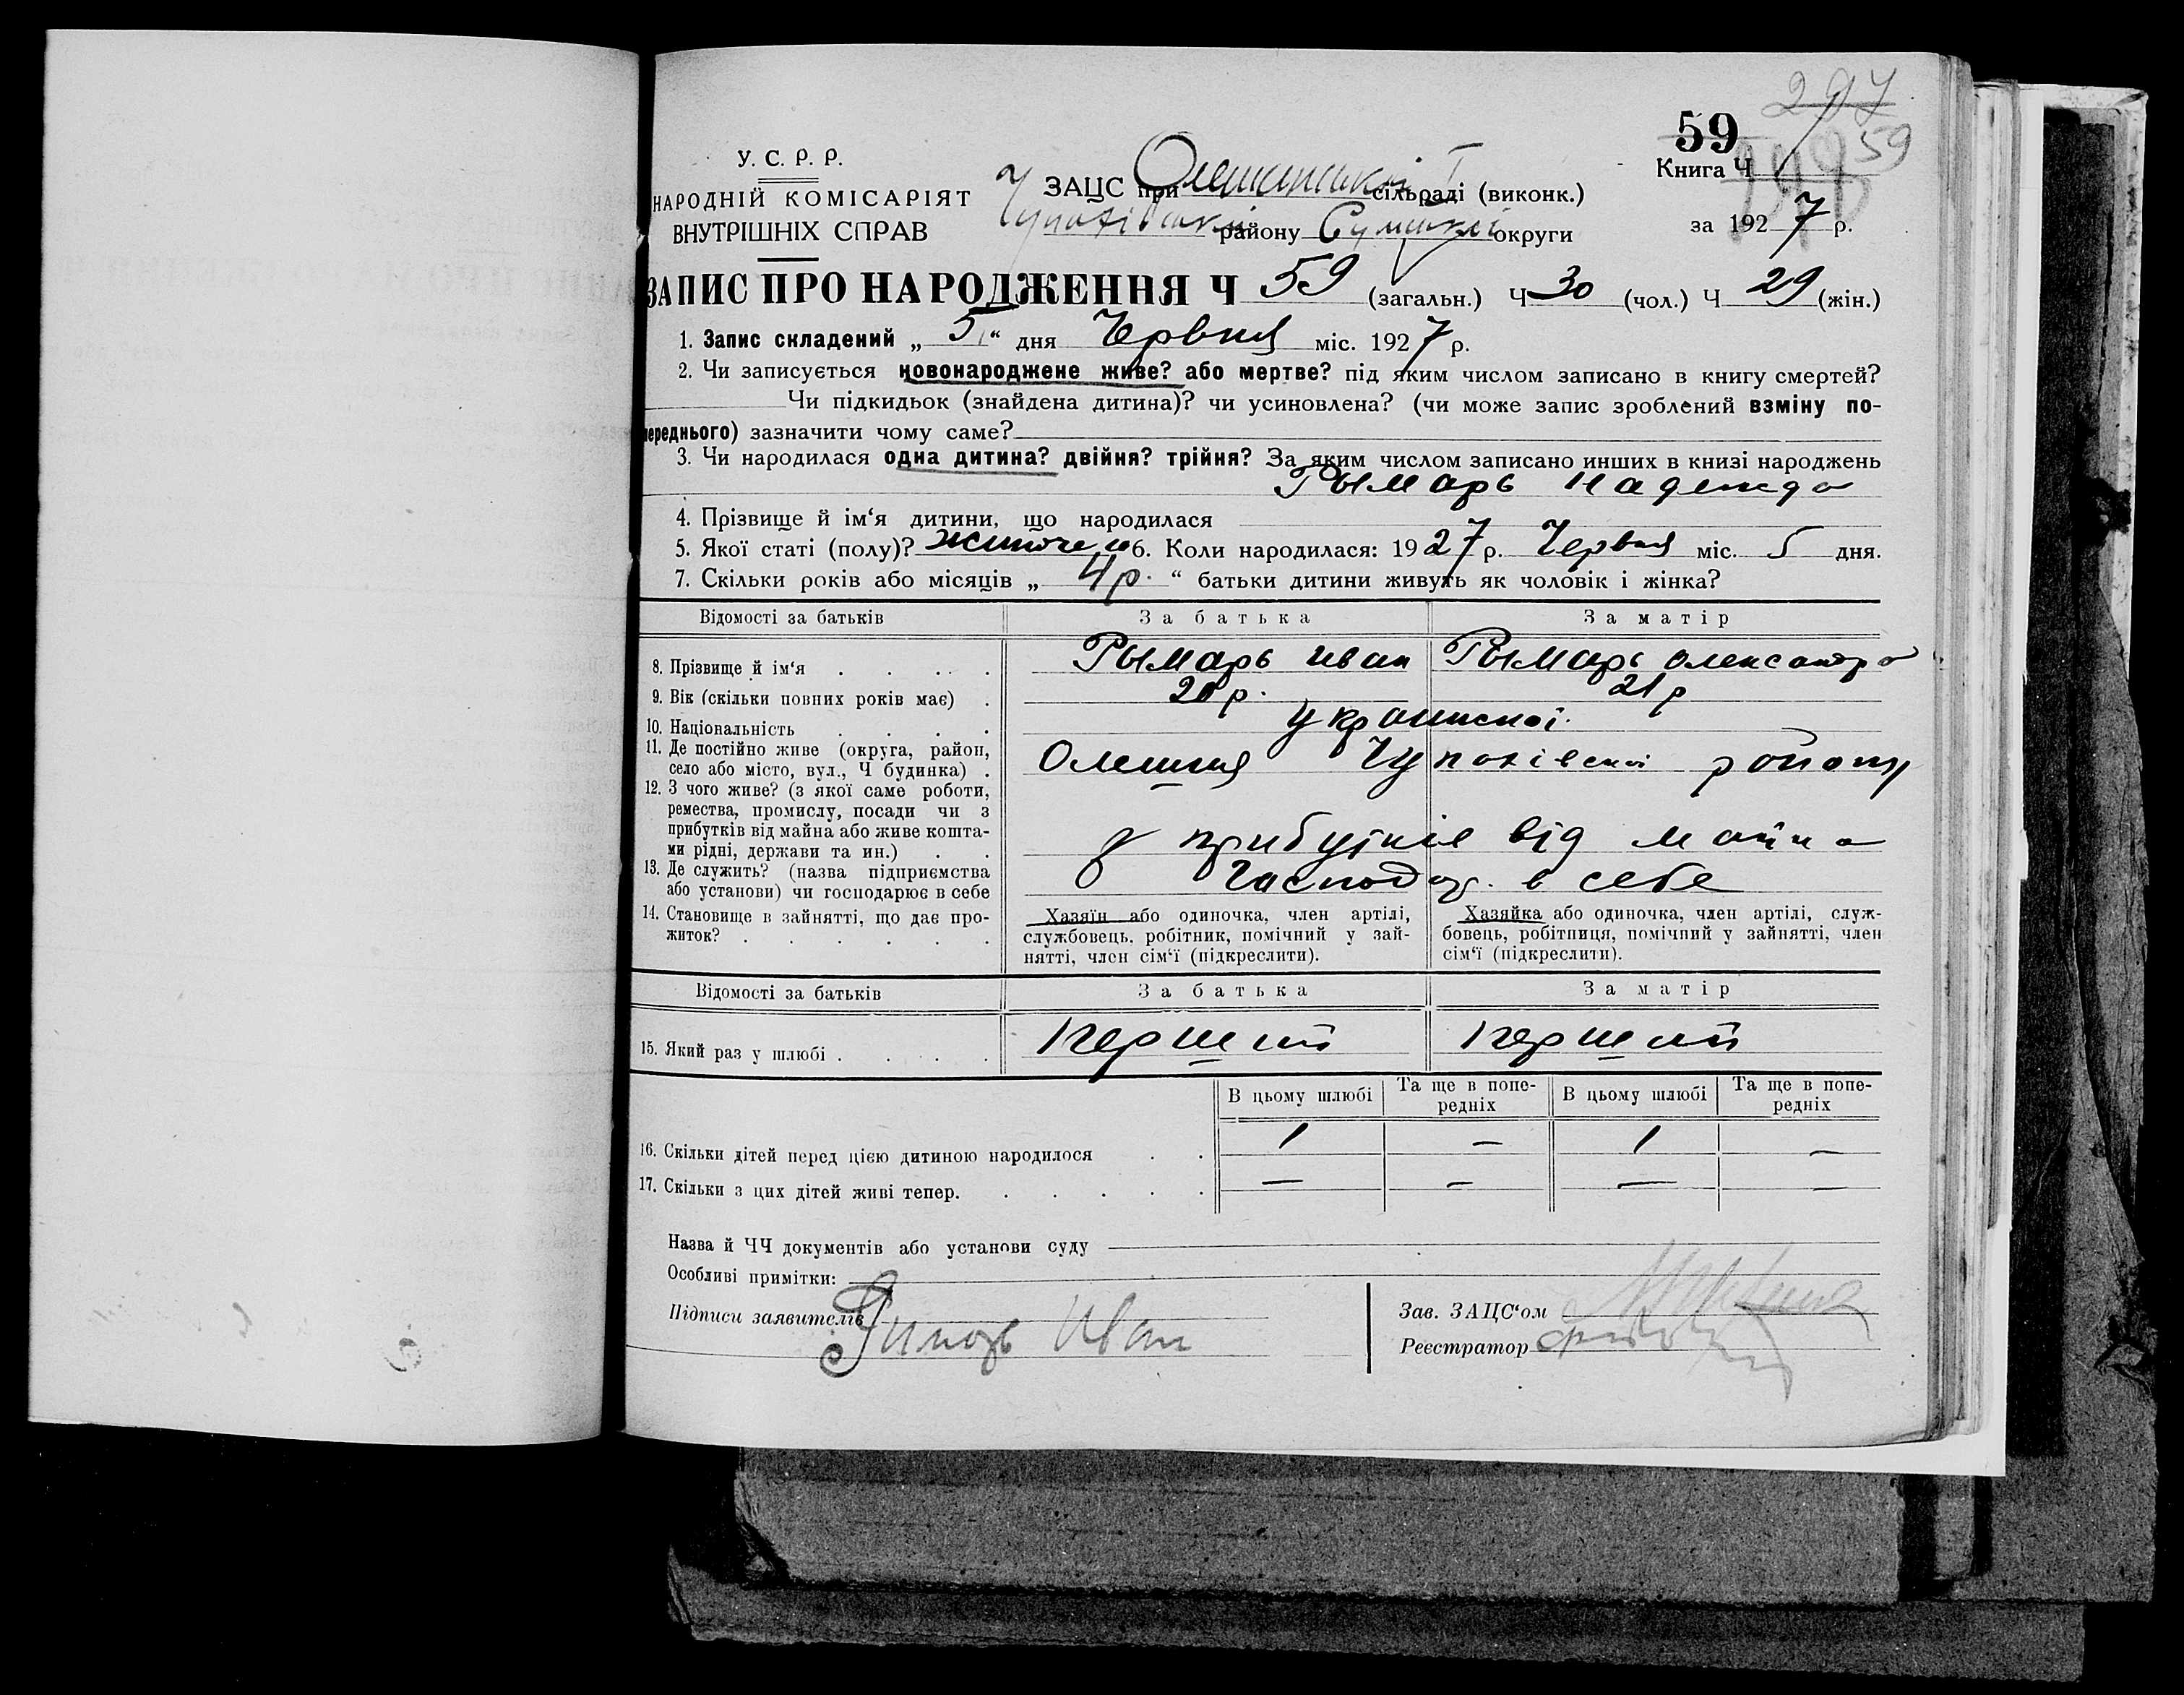 297
59
59
У. С. Р. Р.
НАРОДНІЙ КОМІСАРІЯТ
ВНУТРІШНІХ СПРАВ
Книга Ч
ЗАЦС при Олешнянській І сільраді (виконк.)
Чупахівський району Сумської округи
за 1927 р.
ЗАПИС ПРО НАРОДЖЕННЯ Ч 59 (загальн.) Ч 30 (чол.) Ч 29 (жін.)
1. Запис складений „ 5 “ дня Червня міс. 1927 р.
2. Чи записується новонароджене живе? або мертве? під яким числом записано в книгу смертей?
Чи підкидьок (знайдена дитина)? чи усиновлена? (чи може запис зроблений взміну по-
переднього) зазначити чому саме?
3. Чи народилася одна дитина? двійня? трійня? За яким числом записано инших в книзі народжень
Рымарь Надежда
4. Прізвище й ім‘я дитини, що народилася
5. Якої статі (полу)? жиноче 6. Коли народилася: 1927 р. Червня міс. 5 дня.
7. Скільки років або місяців „ 4 р. “ батьки дитини живуть як чоловік і жінка?
Відомості за батьків За батька За матір
8. Прізвище й ім‘я . . . . Рымарь Иван Рымарь Олександра
9. Вік (скільки повних років має) . 20 р. 21 р
10. Національність . . . . Украинської.
11. Де постійно живе (округа, район,
село або місто, вул., Ч будинка) . Олешня Чупахівской району
12. З чого живе? (з якої саме роботи,
ремества, промислу, посади чи з
прибутків від майна або живе кошта-
ми рідні, держави та ин.) . . З прибутків від майна
13. Де служить? (назва підприємства
або установи) чи господарює в себе Господар. в себе
14. Становище в зайнятті, що дає про-
житок? . . . . . .
Хазяїн або одиночка, член артілі,
службовець, робітник, помічний у зай-
нятті, член сім‘ї (підкреслити).
Хазяйка або одиночка, член артілі, служ-
бовець, робітниця, помічний у зайнятті, член
сім‘ї (підкреслити).
Відомості за батьків За батька За матір
15. Який раз у шлюбі . . . . Перший Перший
В цьому шлюбі Та ще в попе-
редніх В цьому шлюбі Та ще в попе-
редніх
16. Скільки дітей перед цією дитиною народилося . . 1 — 1 —
17. Скільки з цих дітей живі тепер. . . . . . — — — —
Назва й ЧЧ документів або установи суду
Особливі примітки:
Підписи заявителів Римарь Иван
Зав. ЗАЦС‘ом
Реєстратор